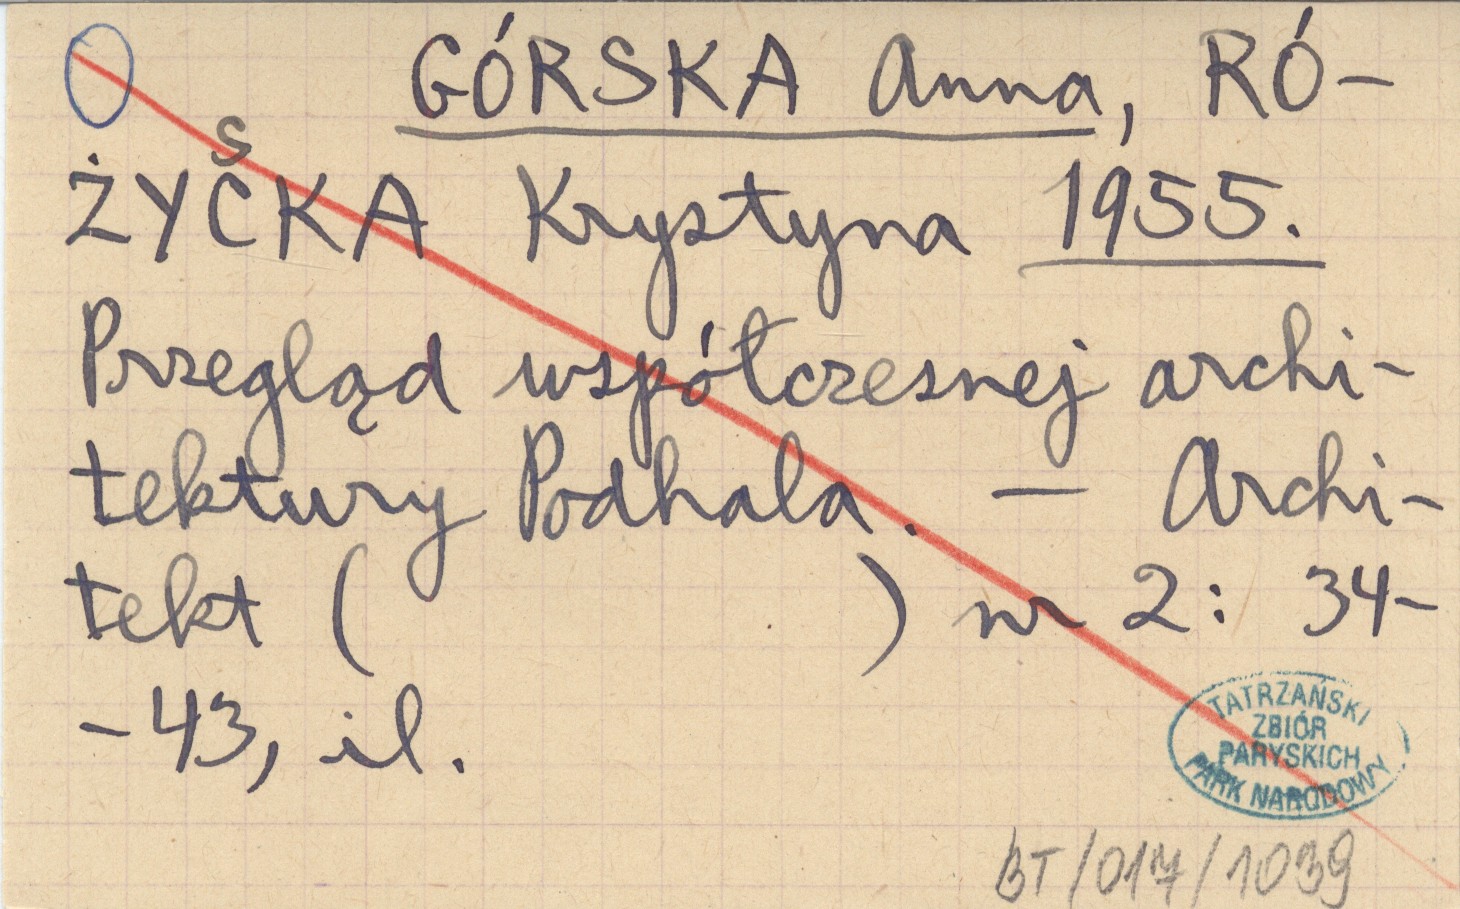 GÓRSKA Anna, RÓ-
S
ŻYCKA Krystyna 1955.
Przegląd współczesnej archi-
tektury Podhala. — Archi-
tekt ( ) nr 2: 34-
-43, il.
TATRZAŃSKI
ZBIÓR
PARYSKICH
PARK NARODOWY
BT/017/1039